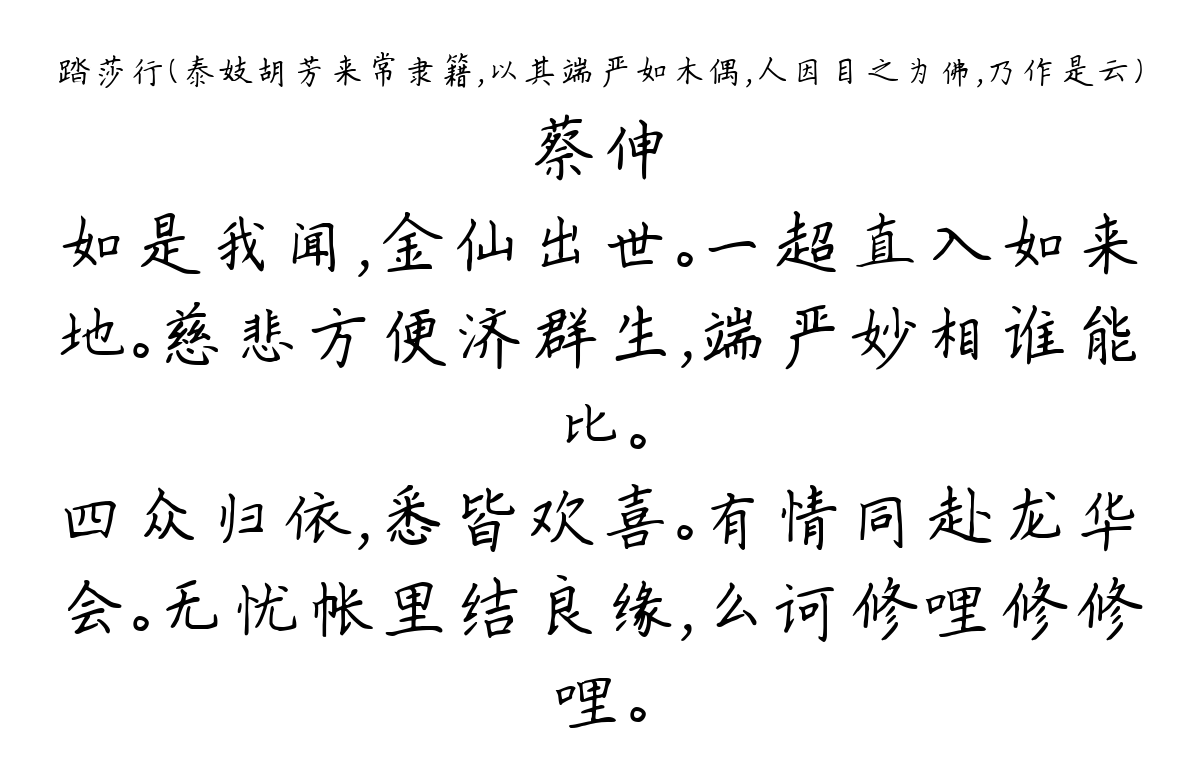 踏莎行(泰妓胡芳来常隶籍,以其端严如木偶,人因目之为佛,乃作是云)
蔡伸
如是我闻,金仙出世。一超直入如来
地。慈悲方便济群生,端严妙相谁能
比。
四众归依,悉皆欢喜。有情同赴龙华
会。无忧帐里结良缘,么诃修哩修修
哩。